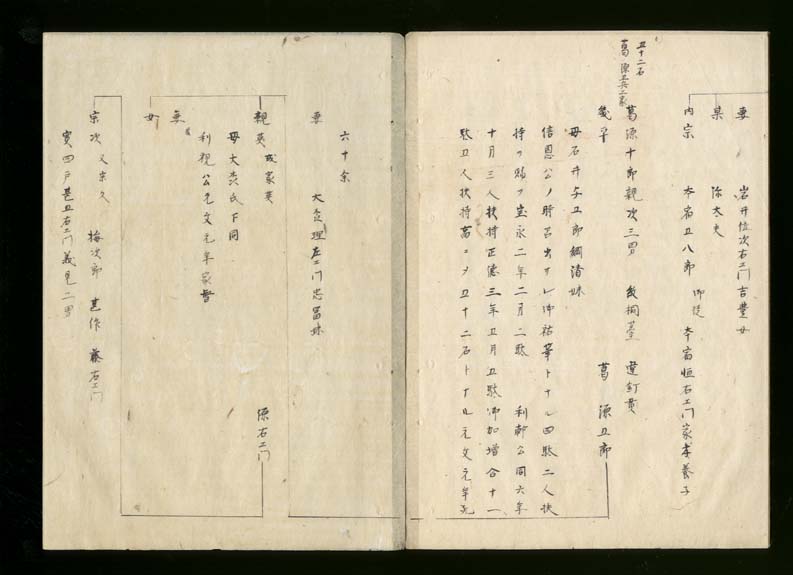 妻 岩井位次右エ門吉豊女
某 弥太夫
内宗 五八郎 御徒 恒右エ門家 養子
五十二石
葛源五兵エ家
葛源十郎親次三男 違釘貫
幾平 葛 源五郎
母石井与五郎綱清妹
信恩公ノ時召出サレ御祐筆トナル四駄二人扶
持ヲ賜フ宝永二年二月二駄 利幹公同六年
十月三人扶持正徳三年五月五駄御加増合十一
駄五人扶持高ニヲ五十二石トナル元文元年死
六十余
妻 大 理左エ門忠富妹
親英 或家英 源右エ門
母大 氏下同
利視公元文元年家督
妻
女
宗次 又宗久 梅次郎 甚作 藤右エ門
実四戸甚五右エ門義見二男